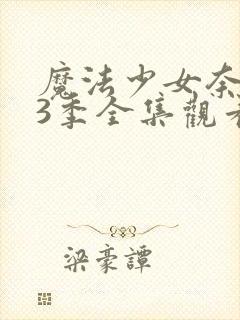 魔法少女奈
3季全集觀看
梁豪譚